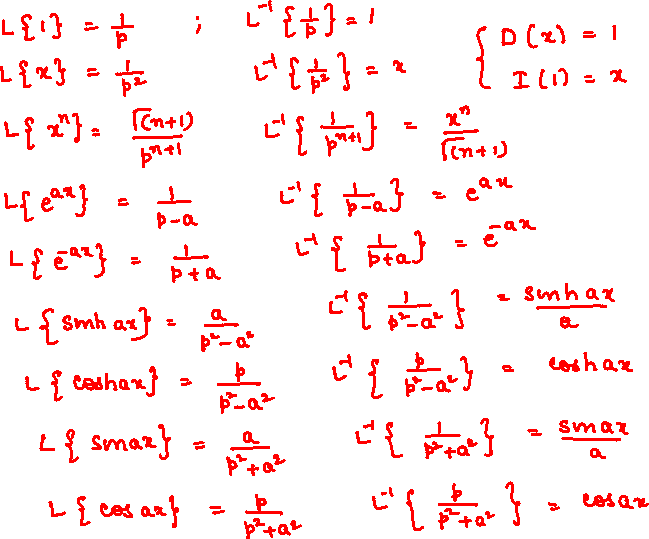 L{1} = 1/p ; L⁻¹{1/p} = 1
{ D(x) = 1
L{x} = 1/p² L⁻¹{1/p²} = x
I(1) = x
L{xⁿ} = Γ(n+1)/pⁿ⁺¹ L⁻¹{1/pⁿ⁺¹} = xⁿ/Γ(n+1)
L{eᵃˣ} = 1/(p-a) L⁻¹{1/(p-a)} = eᵃˣ
L{e⁻ᵃˣ} = 1/(p+a) L⁻¹{1/(p+a)} = e⁻ᵃˣ
L{sinh ax} = a/(p²-a²) L⁻¹{1/(p²-a²)} = sinh ax/a
L{coshax} = p/(p²-a²) L⁻¹{p/(p²-a²)} = coshax
L{sinax} = a/(p²+a²) L⁻¹{1/(p²+a²)} = sinax/a
L{cos ax} = p/(p²+a²) L⁻¹{p/(p²+a²)} = cosax